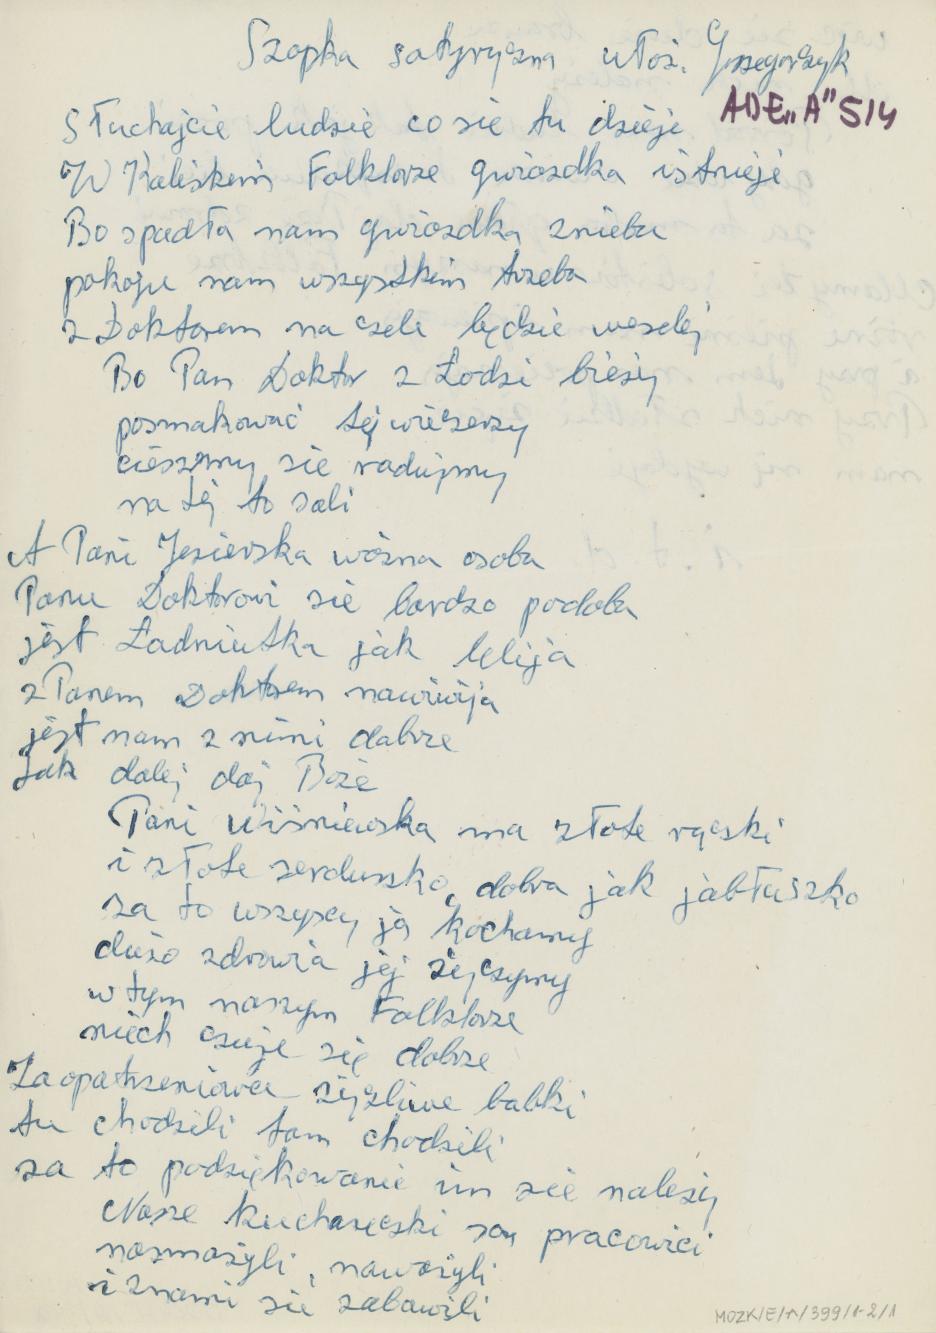 Szopka satyryczna ułoż. Grzegorczyk
ADE„A" 514
Słuchajcie ludzie co sie tu dzieje
W Kaliskim Folklorze gwiazdka istnieje
Bo spadła nam gwiazdka z nieba
pokoju nam wszystkim trzeba
z Doktorem na czele będzie weselej
Bo Pan Doktor z Łodzi bieży
posmakować tej wieczerzy
cieszmy sie radujmy
na tej to sali
A Pani Jezierska ważna osoba
Panu Doktorowi sie bardzo podoba
jest Ładniutka jak lelija
z Panem Doktorem nawiwija
jest nam z nimi dobrze
Jak dalej daj Boże
Pani Wiśniewska ma złote rączki
i złote serduszko, dobra jak jabłuszko
za to wszyscy ją kochamy
dużo zdrowia jej życzymy
w tym naszym Folklorze
niech czuje się dobrze
Zaopatrzeniowca życzliwe babki
tu chodzili tam chodzili
za to podziękowanie im sie należy
Nasze kuchareczki są pracowici
nasmażyli, nawarzyli
i znami sie zabawili
MOZK/E/A/399/1-2/1